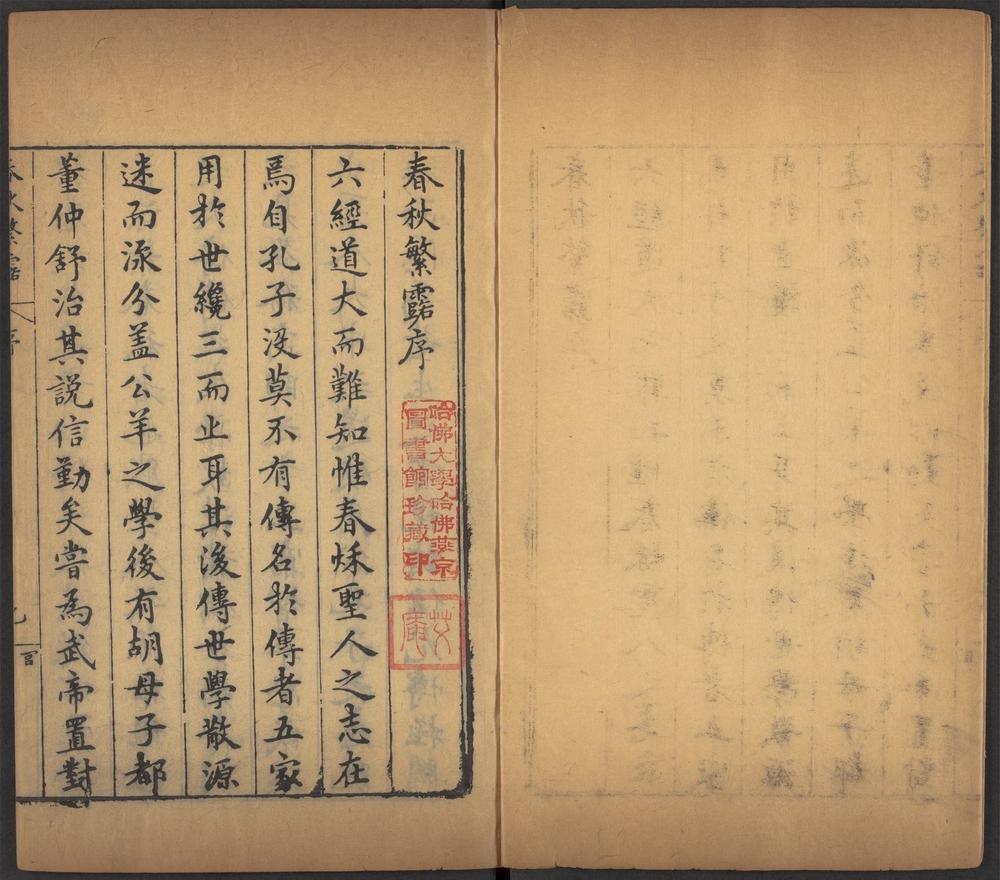 春秋繁露序
六經道大而難知惟春秌聖人之志在
焉自孔子没莫不有傳名於傳者五家
用於世纔三而止耳其後傳世學散源
迷而泒分盖公羊之學後有胡母子都
董仲舒治其説信勤矣嘗爲武帝置對
哈佛大學哈佛燕京
圖書館珍藏印
春秋繁露
序